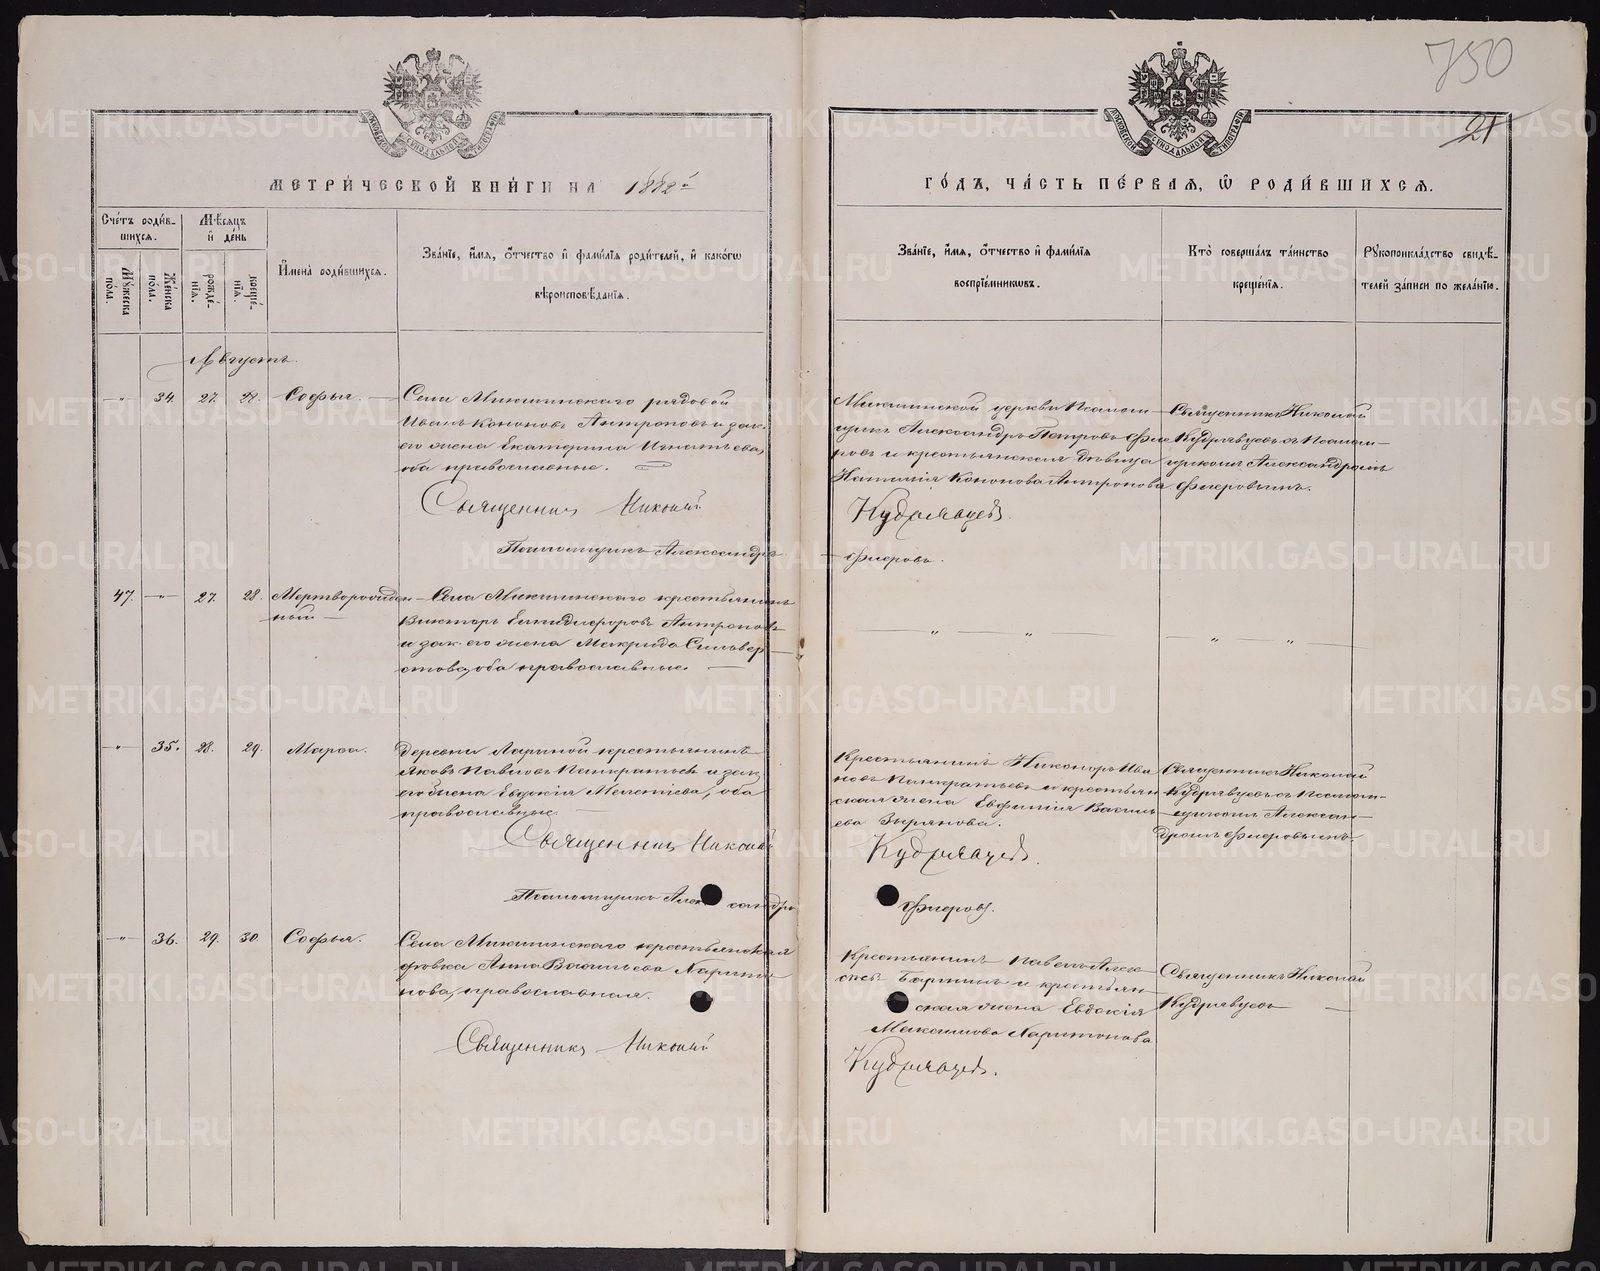 750
21
МЕТРИЧЕСКОЙ КНИГИ НА 1882 й
ГОДЪ, ЧАСТЬ ПЕРВАЯ, Ѿ РОДИВШИХСЯ.
Счетъ родив-
шихся.
Мѣсяцъ
и день
Мужеска
пола.
Женска
пола.
рожде-
нїя.
креще-
нїя.
Имена родившихся.
Званїе, имя, отчество и фамилїя родителей, и какогѡ
вѣроисповѣданїя.
Званїе, имя, отчество и фамилїя
воспрїемниковъ.
Кто совершалъ таинство
крещенїя.
Рукоприкладство свидѣ-
телей записи по желанїю.
Августъ.
34. 27. 28. Софья.
Села Микшинскаго рядовой
Иванъ Кононовъ Антроповъ и зак.
его жена Екатерина Игнатьева,
оба православные.
Священникъ Николай
Псаломщикъ Александръ
Микшинской церкви Псалом-
щикъ Александръ Петровъ Фле
ровъ и крестьянская дѣвица
Наталія Кононова Антропова
Кудрявцевъ.
Флеровъ.
Священникъ Николай
Кудрявцевъ съ Псалом-
щикомъ Александромъ
Флеровымъ.
47. 27. 28. Мертворожден-
ный
Села Микшинскаго крестьянинъ
Викторъ Антроповъ
и зак. его жена Макрида Сильвер
стова, оба православные.
35. 28. 29. Марѳа.
Деревни Лариной крестьянинъ
Яковъ Павловъ Панкратьевъ и зак.
его жена Евдокія Мелетіева, оба
православные.
Священникъ Николай
Псаломщикъ Александръ
Крестьянинъ Никоноръ Ива
новъ Панкратьевъ и крестьян
ская жена Евфимія Василь
ева Зырянова.
Кудрявцевъ.
Флеровъ.
Священникъ Николай
Кудрявцевъ съ Псалом-
щикомъ Алексан-
дромъ Флеровымъ.
36. 29. 30. Софья.
Села Микшинскаго крестьянская
дѣвка Анна Васильева Харито
нова, православная.
Священникъ Николай
Крестьянинъ Павелъ Алек
сѣевъ и крестьян
ская жена Евдокія
Максимова Харитонова
Кудрявцевъ.
Священникъ Николай
Кудрявцевъ
METRIKI.GASO-URAL.RU